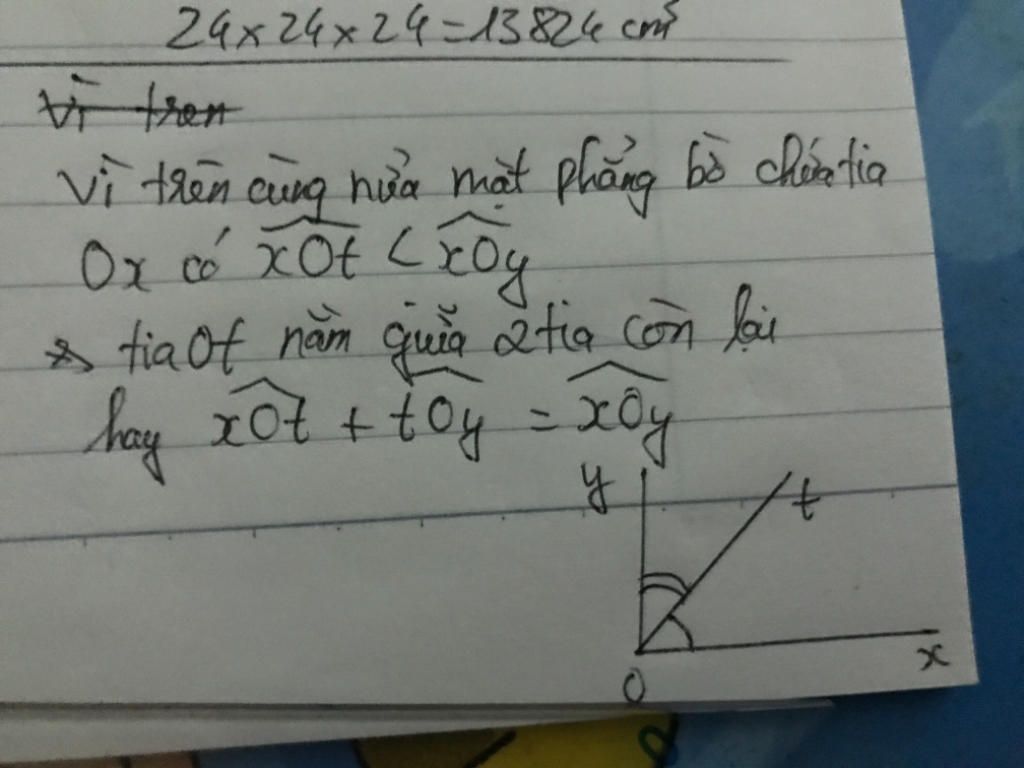 24×24×24=13824 cm³
Vì tren
Vì trên cùng nửa mặt phẳng bờ chứa tia
Ox có xOt < xOy
tia Ot nằm giữa 2 tia còn lại
hay xOt + tOy = xOy
y
t
x
O